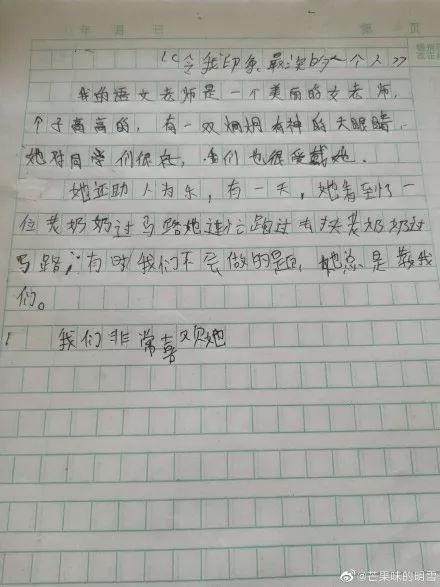 年 月 日 第 页
《令我印象最深的一个人》
我的语文老师是一个美丽的女老师,
个子高高的,有一双炯炯有神的大眼睛,
她对同学们很好,我们也很爱戴她.
她还助人为乐,有一天,她看到了一
位老奶奶过马路她连忙跑过去扶老奶奶过
马路,有时我们不会做的题,她总是教我
们。
我们非常喜欢她
@芒果味的明雪